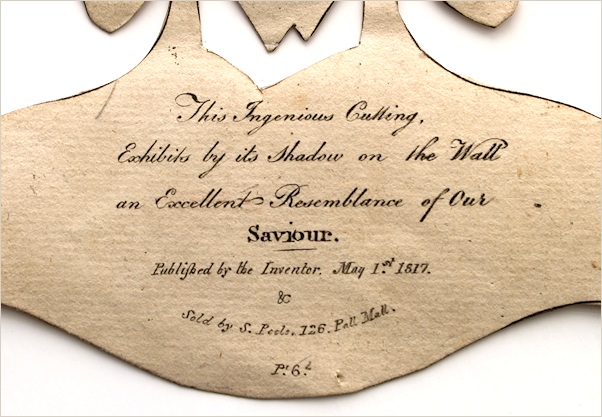 This Ingenious Cutting,
Exhibits by its Shadow on the Wall
an Excellent Resemblance of Our
Saviour.
Publiſhed by the Inventor. May 1.st 1817.
&
Sold by S. Peels. 126. Pall Mall.
Pt. 6.d